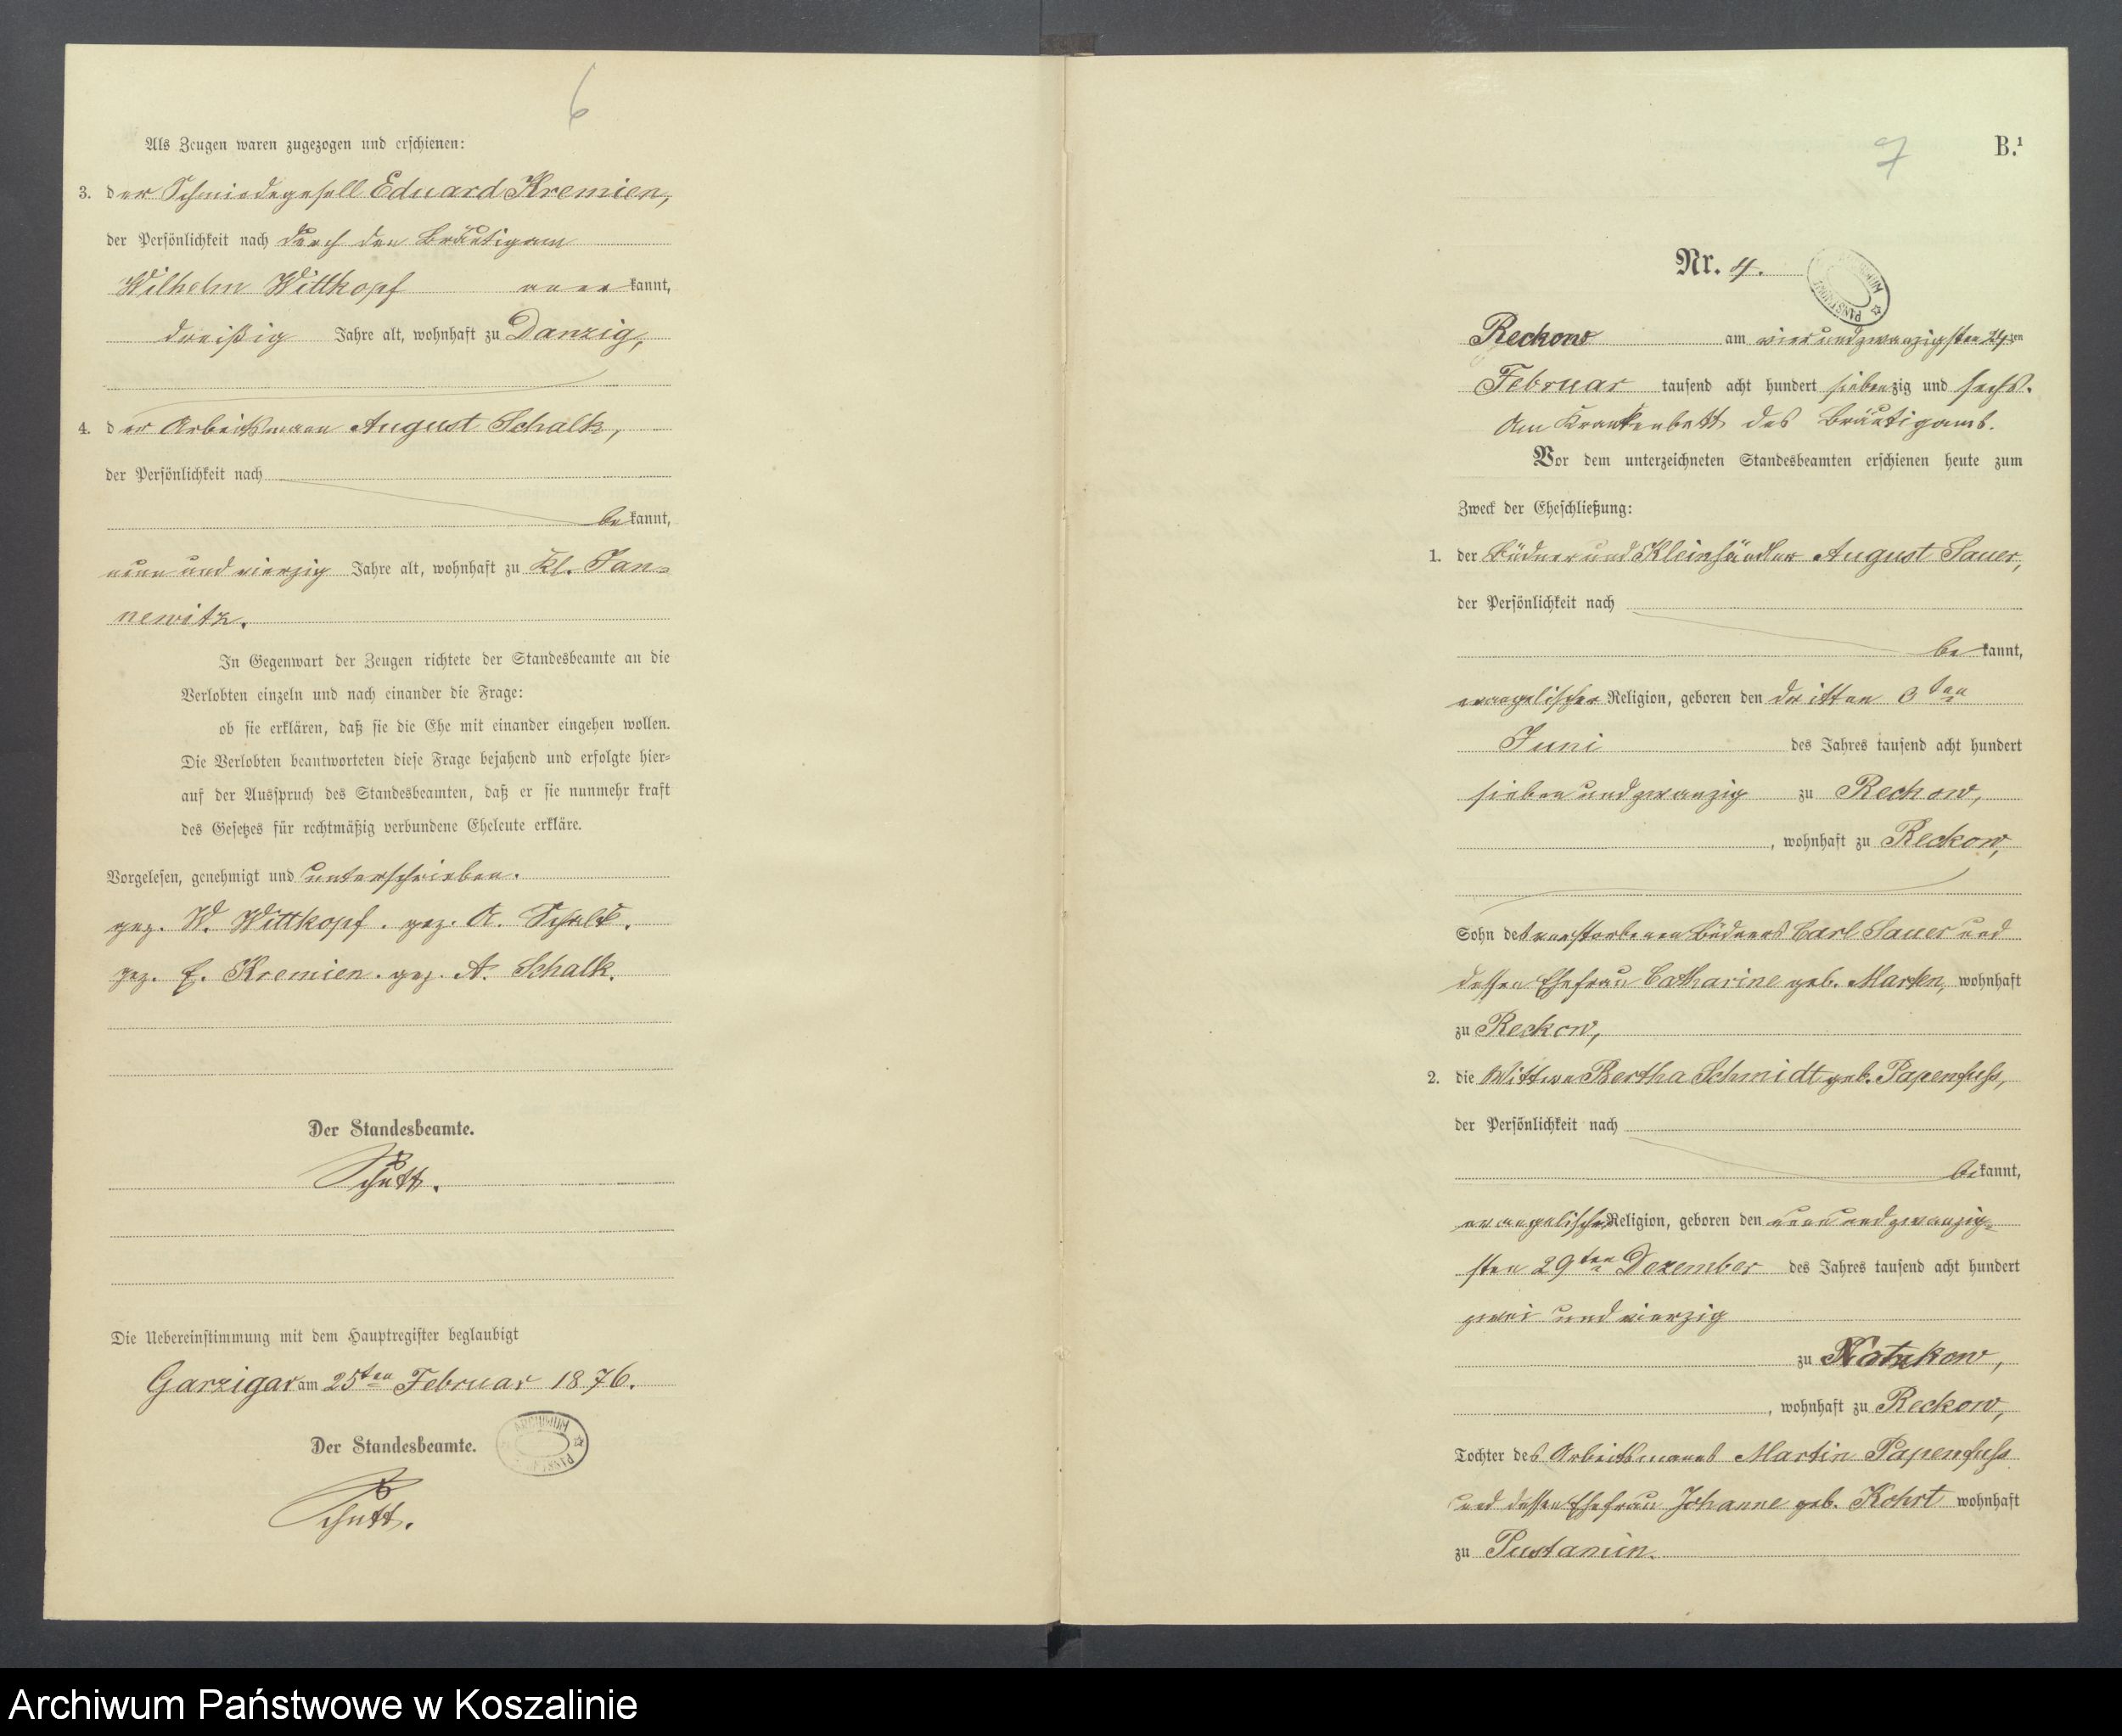 6
Als Zeugen waren zugezogen und erschienen:
3. der Schmiedegesell Eduard Kremien,
der Persönlichkeit nach durch den Bräutigam
Wilhelm Wittkopf anerkannt,
dreißig Jahre alt, wohnhaft zu Danzig,
4. der Arbeitsmann August Schalk,
der Persönlichkeit nach
bekannt,
neun und vierzig Jahre alt, wohnhaft zu Kl. Jan=
newitz.
In Gegenwart der Zeugen richtete der Standesbeamte an die
Verlobten einzeln und nach einander die Frage:
ob sie erklären, daß sie die Ehe mit einander eingehen wollen.
Die Verlobten beantworteten diese Frage bejahend und erfolgte hier=
auf der Ausspruch des Standesbeamten, daß er sie nunmehr kraft
des Gesetzes für rechtmäßig verbundene Eheleute erkläre.
Vorgelesen, genehmigt und unterschrieben.
gez. W. Wittkopf. gez. A. Schalk.
gez. E. Kremien. gez. A. Schalk.
Der Standesbeamte.
Schütt.
Die Uebereinstimmung mit dem Hauptregister beglaubigt
Garzigar am 25ten Februar 1876.
Der Standesbeamte.
ARCHIWUM
Schütt.
7
B.¹
Nr. 4.
Reckow am vierundzwanzigsten 24ten
Februar tausend acht hundert siebenzig und sechs.
Am Krankenbett des Bräutigams.
Vor dem unterzeichneten Standesbeamten erschienen heute zum
Zweck der Eheschließung:
1. der Büdner und Kleinhändler August Sauer,
der Persönlichkeit nach
bekannt,
evangelischer Religion, geboren den dritten 3ten
Juni des Jahres tausend acht hundert
sieben und zwanzig zu Reckow,
, wohnhaft zu Reckow,
Sohn des verstorbenen Büdners Carl Sauer und
dessen Ehefrau Catharine geb. Marten, wohnhaft
zu Reckow,
2. die Wittwe Bertha Schmidt geb. Papenfuss,
der Persönlichkeit nach
bekannt,
evangelischer Religion, geboren den neun und zwanzig=
sten 29ten Dezember des Jahres tausend acht hundert
zwei und vierzig
zu
, wohnhaft zu Reckow,
Tochter des Arbeitsmanns Martin Papenfuss
und dessen Ehefrau Johanne geb. Kohrt wohnhaft
zu Pustamin.
Archiwum Państwowe w Koszalinie